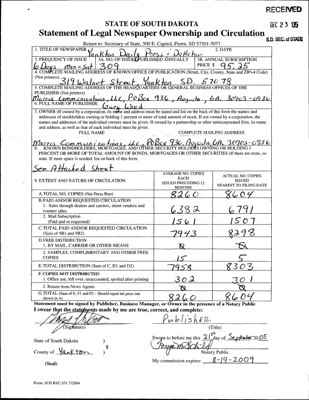 RECEIVED
DEC 23 '05
S.D. SEC. of STATE
STATE OF SOUTH DAKOTA
Statement of Legal Newspaper Ownership and Circulation
Return to: Secretary of State, 500 E. Capitol, Pierre, SD 57501-5077
1. TITLE OF NEWSPAPER Yankton Daily Press & Dakotan
2. DATE
3. FREQUENCY OF ISSUE 6 Days Mon-Sat
3A. NO. OF ISSUES PUBLISHED ANNUALLY 309
3B. ANNUAL SUBSCRIPTION PRICE $ 95.25
4. COMPLETE MAILING ADDRESS OF KNOWN OFFICE OF PUBLICATION (Street, City, County, State and ZIP+4 Code) (Not printers)
319 Walnut Street Yankton SD. 57078
5. COMPLETE MAILING ADDRESS OF THE HEADQUARTERS OR GENERAL BUSINESS OFFICES OF THE PUBLISHER (Not printers)
Morris Communications, LLC, PO Box 936, Augusta, GA. 30903-0936
6. FULL NAME OF PUBLISHER: Gary Wood
7. OWNER (If owned by a corporation, its name and address must be stated and list on the back of this form the names and addresses of stockholders owning or holding 1 percent or more of total amount of stock. If not owned by a corporation, the names and addresses of the individual owners must be given. If owned by a partnership or other unincorporated firm, its name and address, as well as that of each individual must be given.
FULL NAME
COMPLETE MAILING ADDRESS
Morris Communications, LLC, PO Box 936, Augusta, GA. 30903-0936
8. KNOWN BONDHOLDERS, MORTGAGES, AND OTHER SECURITY HOLDERS OWNING OR HOLDING 1 PERCENT OR MORE OF TOTAL AMOUNT OF BONDS, MORTGAGES OR OTHER SECURITIES (If there are none, so state. If more space is needed, list on back of this form.
See Attached Sheet
9. EXTENT AND NATURE OF CIRCULATION
AVERAGE NO. COPIES EACH ISSUED PRECEDING 12 MONTHS
ACTUAL NO. COPIES ISSUED NEAREST TO FILING DATE
A. TOTAL NO. COPIES (Net Press Run) 8260 8604
B. PAID AND/OR REQUESTED CIRCULATION
1. Sales through dealers and carriers, street vendors and counter sales. 6382 6791
2. Mail Subscription (Paid and or requested) 1561 1507
C. TOTAL PAID AND/OR REQUESTED CIRCULATION (Sum of 9B1 and 9B2) 7943 8298
D. FREE DISTRIBUTION
1. BY MAIL, CARRIER OR OTHER MEANS 0 0
2. SAMPLES, COMPLIMENTARY AND OTHER FREE COPIES 15 5
E. TOTAL DISTRIBUTION (Sum of C, D1 and D2) 7958 8303
F. COPIES NOT DISTRIBUTED
1. Office use, left over, unaccounted, spoiled after printing 302 301
2. Return from News Agents 0 0
G. TOTAL (Sum of E, F1 and F2 - Should equal net press run shown in A) 8260 8604
Statement must be signed by Publisher, Business Manager, or Owner in the presence of a Notary Public
I swear that the statements made by me are true, correct, and complete:
Publisher
(Signature)
(Title)
State of South Dakota )
) §
County of Yankton )
Sworn to before me this 21st day of September 05
Notary Public
(Seal)
My commission expires: 8-19-2009
Form: SOS REC 051 7/2004